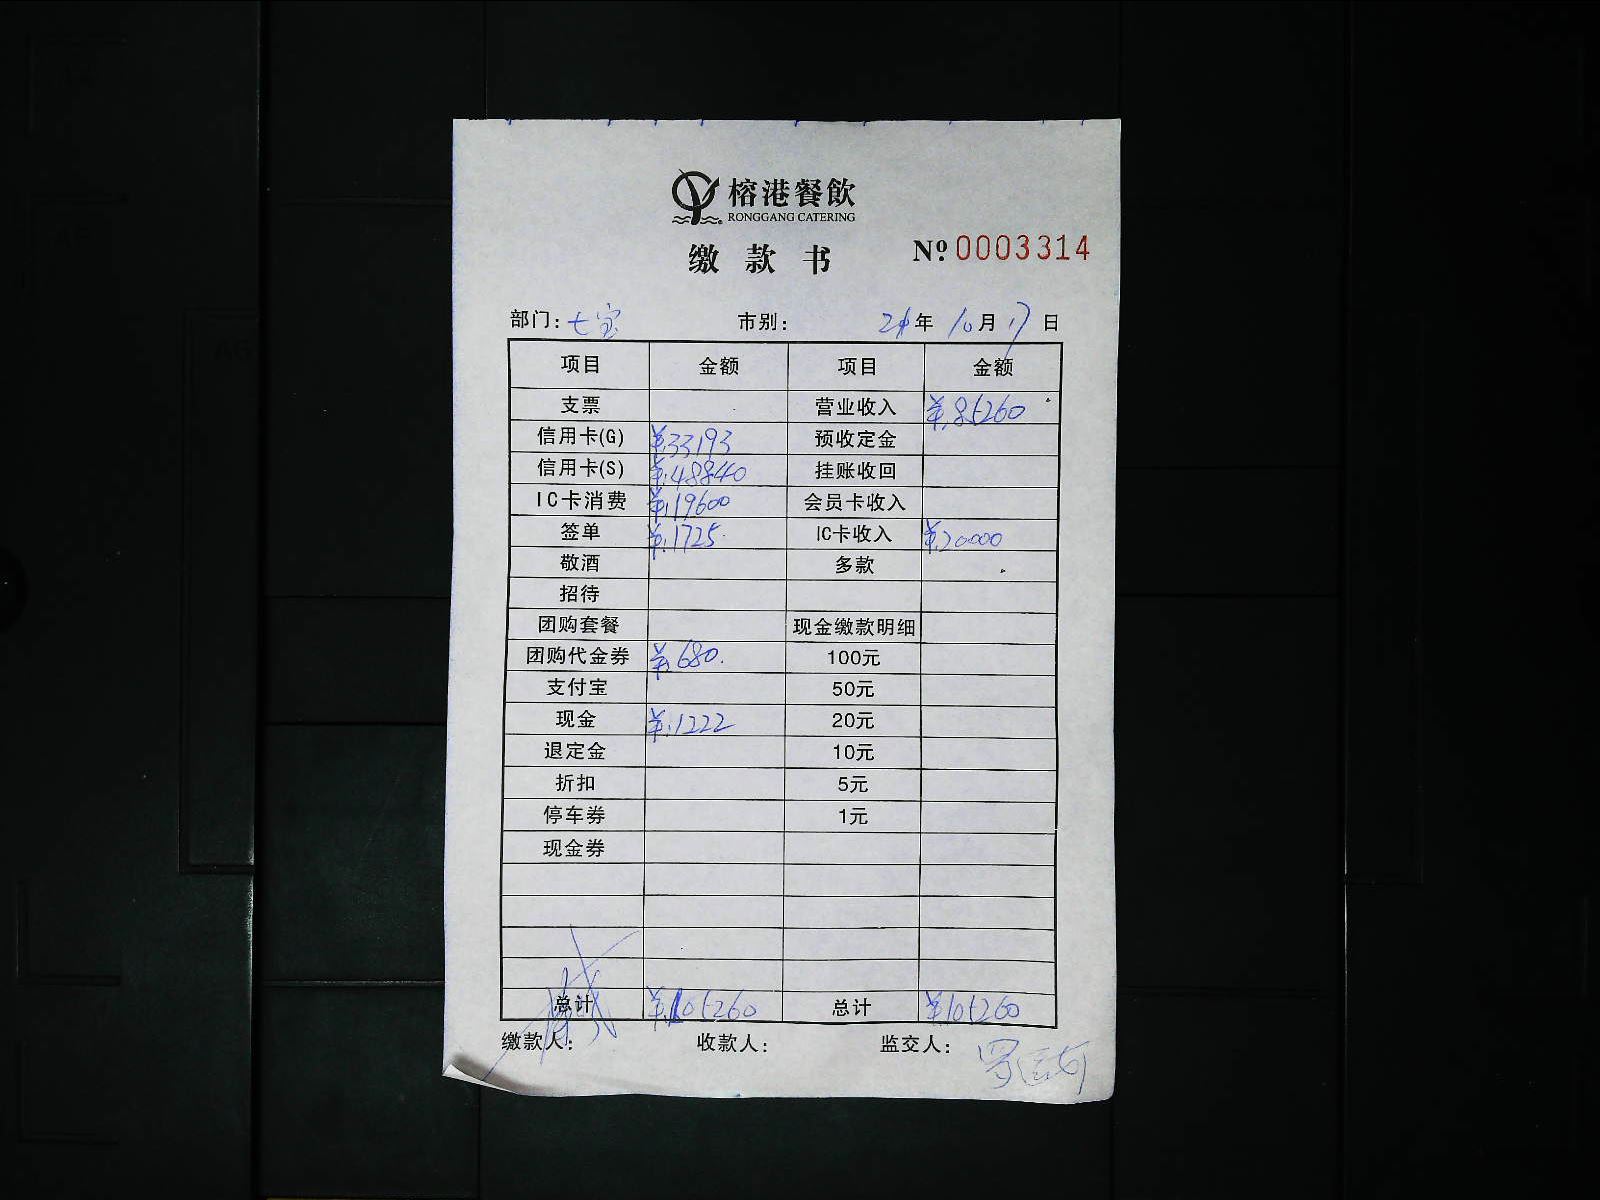 榕港餐飲
RONGGANG CATERING
缴款书 №0003314
部门:七宝 市别: 21年10月17日
项目 金额 项目 金额
支票 营业收入 ¥.85260
信用卡(G) ¥.33193 预收定金
信用卡(S) ¥.48840 挂账收回
IC卡消费 ¥.19600 会员卡收入
签单 ¥.1725 IC卡收入 ¥.20000
敬酒 多款
招待
团购套餐 现金缴款明细
团购代金券 ¥.680. 100元
支付宝 50元
现金 ¥.1222 20元
退定金 10元
折扣 5元
停车券 1元
现金券
总计 ¥.105260 总计 ¥105260
缴款人: 收款人: 监交人: